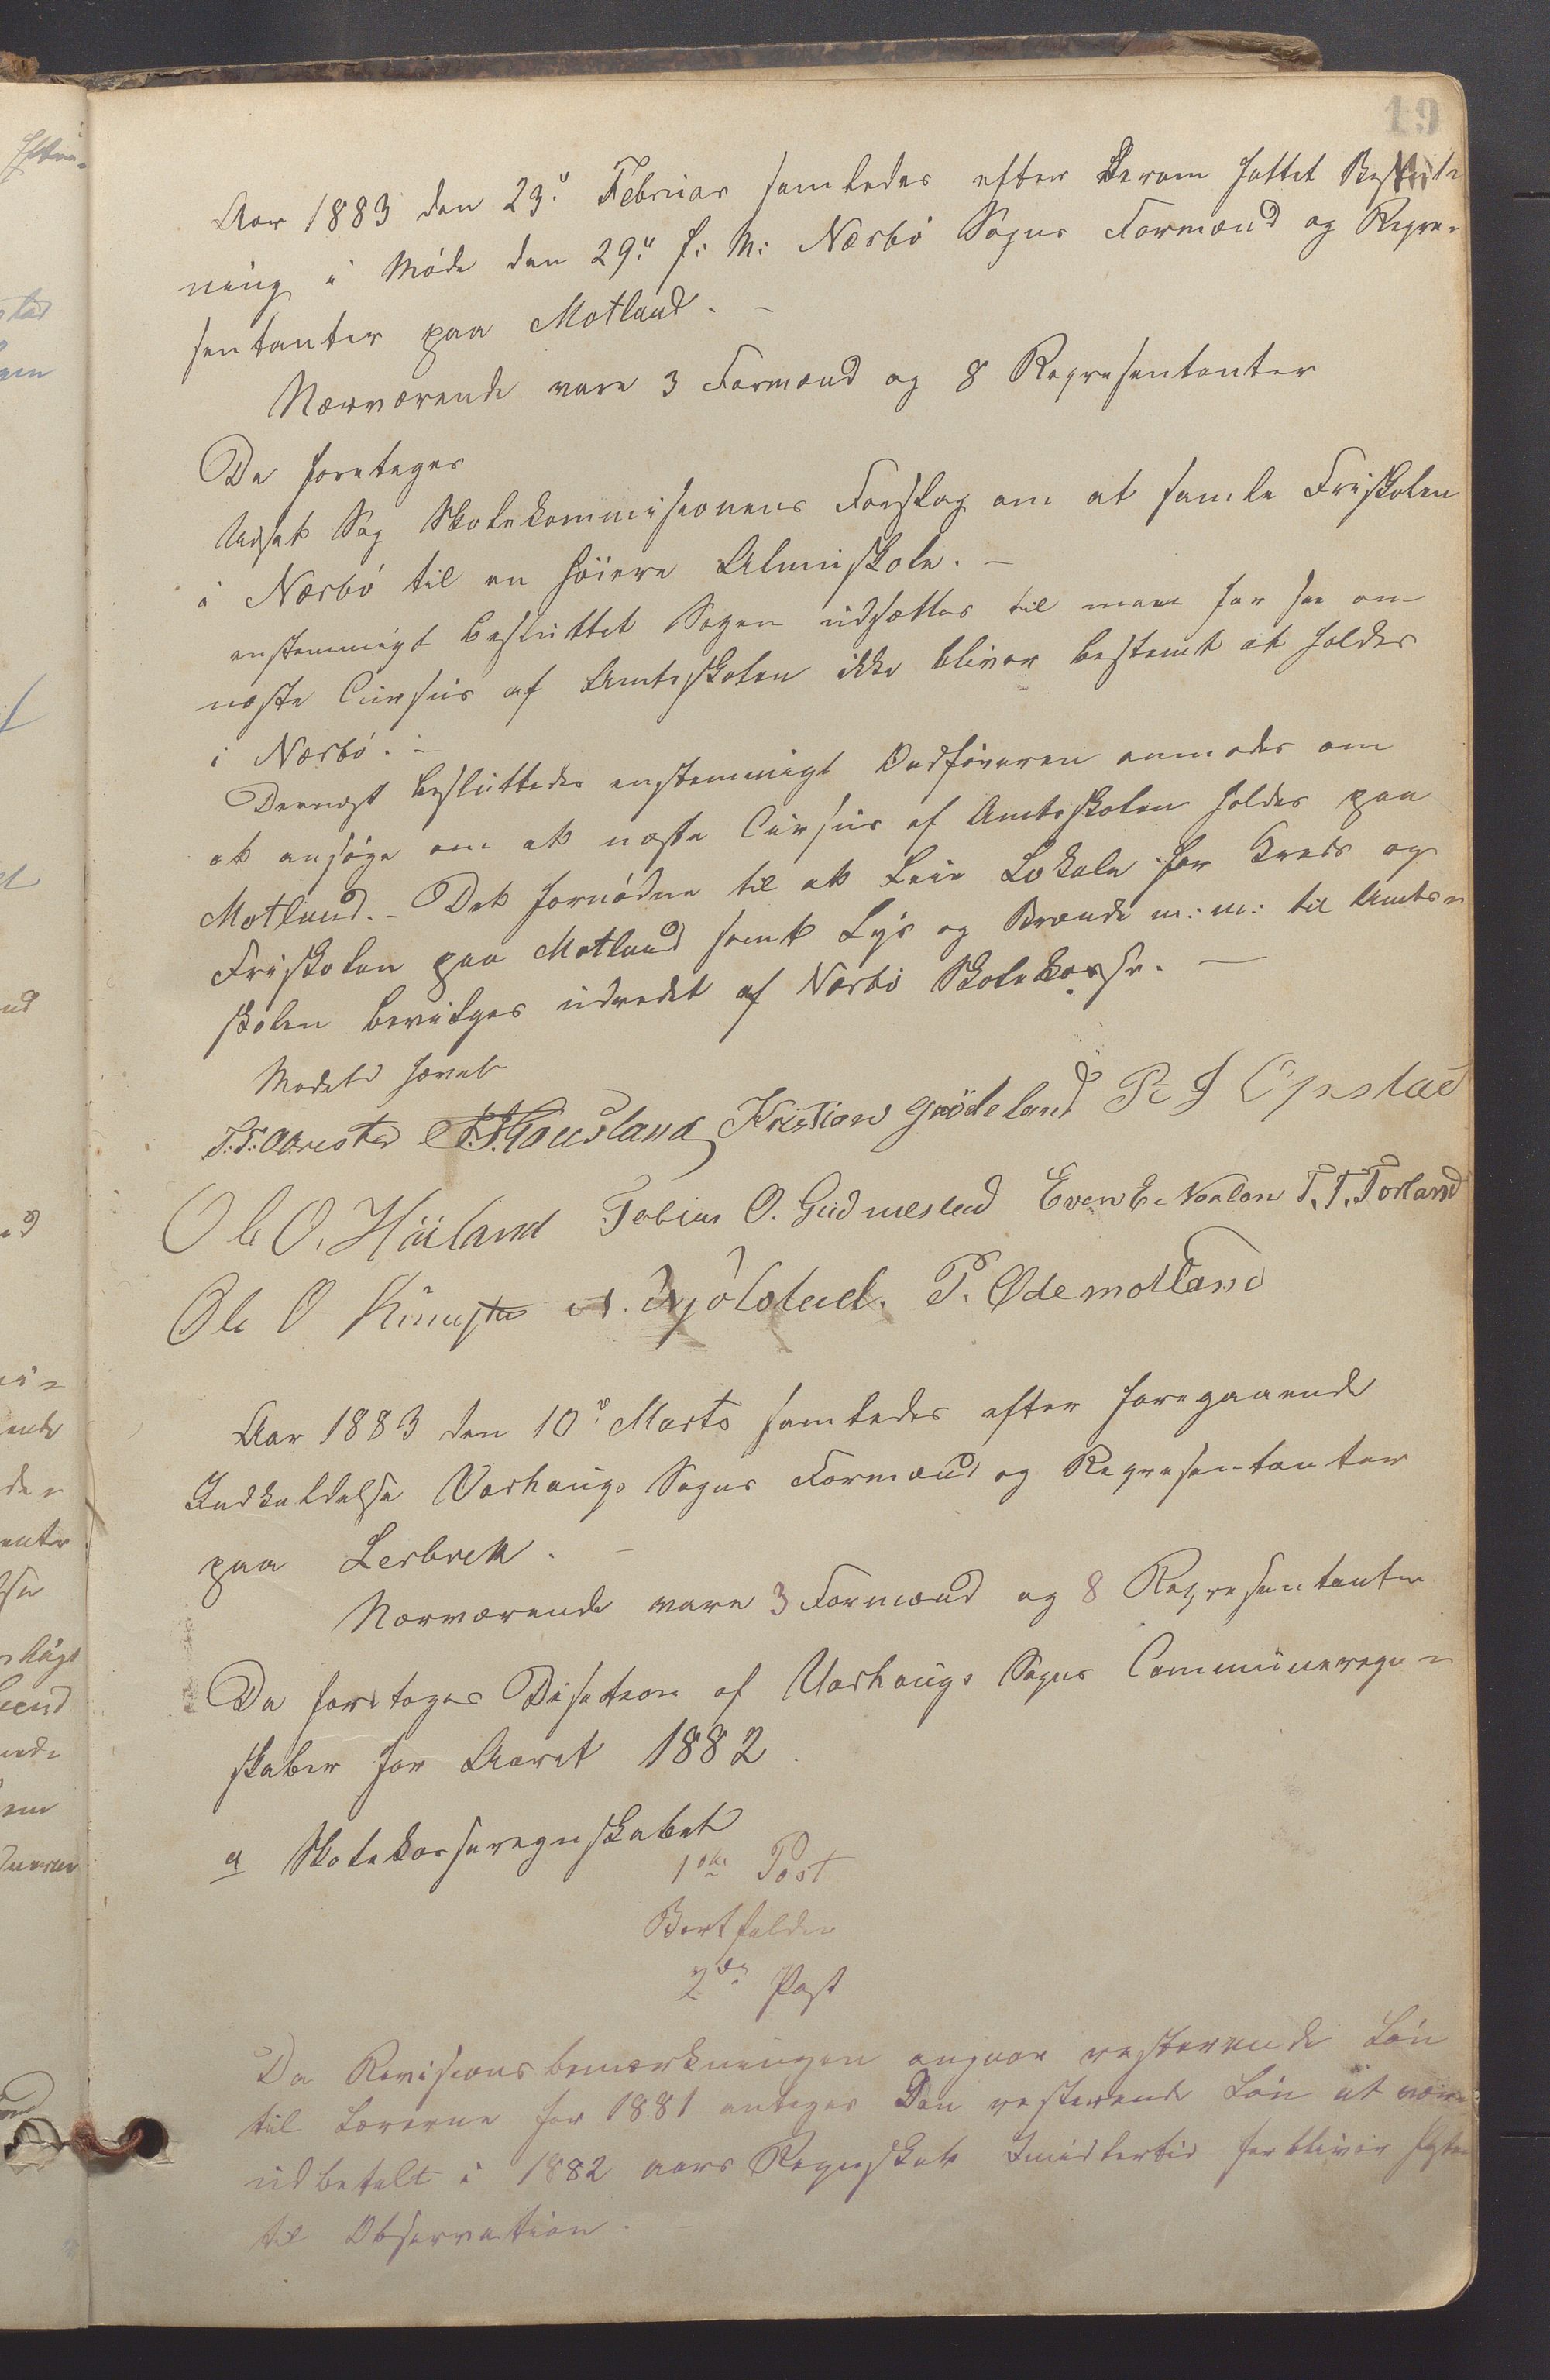 19
Aar 1883 den 23de Februar samledes efter derom fattet Beslut-
ning i Møde den 29de f: M: Nærbø Sogns Formænd og Repræ-
sentanter paa Motland. -
Nærværende vare 3 Formænd og 8 Repræsentanter
Da foretages
Udsat Sag Skolekommissionens Forslag om at samle Friskolen
i Nærbø til en høiere Almuskole. -
enstemmigt besluttet Sagen udsættes til man faar see om
næste Cursus af Amtsskolen ikke bliver bestemt at holdes
i Nærbø. -
Dernæst besluttedes enstemmigt Ordføreren anmodes om
at ansøge om at næste Cursus af Amtsskolen holdes paa
Motland. - Det fornødne til at Leie Lokale for Kreds og
Friskolen paa Motland samt Lys og Brænde m: m: til Amts-
skolen bevilges udredet af Nærbø Skolekasse. -
Mødet hævet
T. T. Aarrestad S. Haugland Kristian Grødeland P. J Opstad
Ole O. Høiland Tobias O. Gudmestad Even E. Nærland T. T. Torland
Ole O A. Njølstad. P. Ødemotland
Aar 1883 den 10de Marts samledes efter foregaaende
Indkaldelse Varhaugs Sogns Formænd og Repræsentanter
paa Lerbrek. -
Nærværende vare 3 Formænd og 8 Repræsentanter
Da foretages Desition af Varhaugs Sogns Communeregn-
skaber for Aaret 1882
a Skolekasseregnskabet
1ste Post
Bortfalder
2den Post
Da Revisionsbemærkningen angaar resterende Løn
til Lærerne for 1881 antages Den resterende Løn at være
udbetalt i 1882 aars Regnskab Imidlertid forbliver Posten
til Observation.